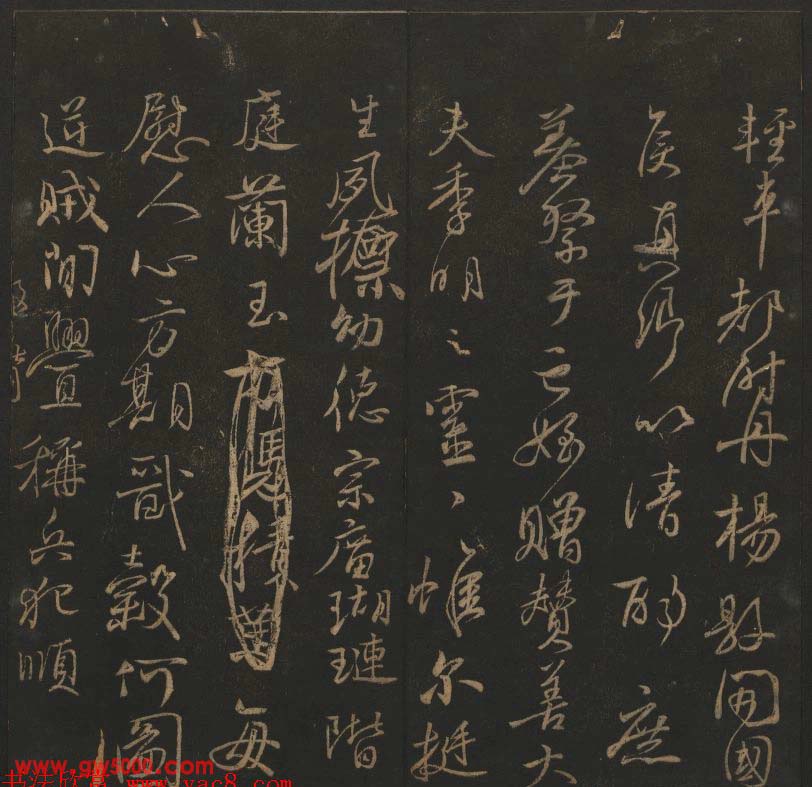 輕車都尉丹楊縣開國
侯真卿以清酌庶
羞祭于亡姪贈贊善大
夫季明之靈曰惟尔挺
生夙標幼德宗廟瑚璉階
庭蘭玉方憑積善每
慰人心方期戩穀何圖
逆賊間釁稱兵犯順
www.gw5000.com
书法欣赏 www.yac8.com